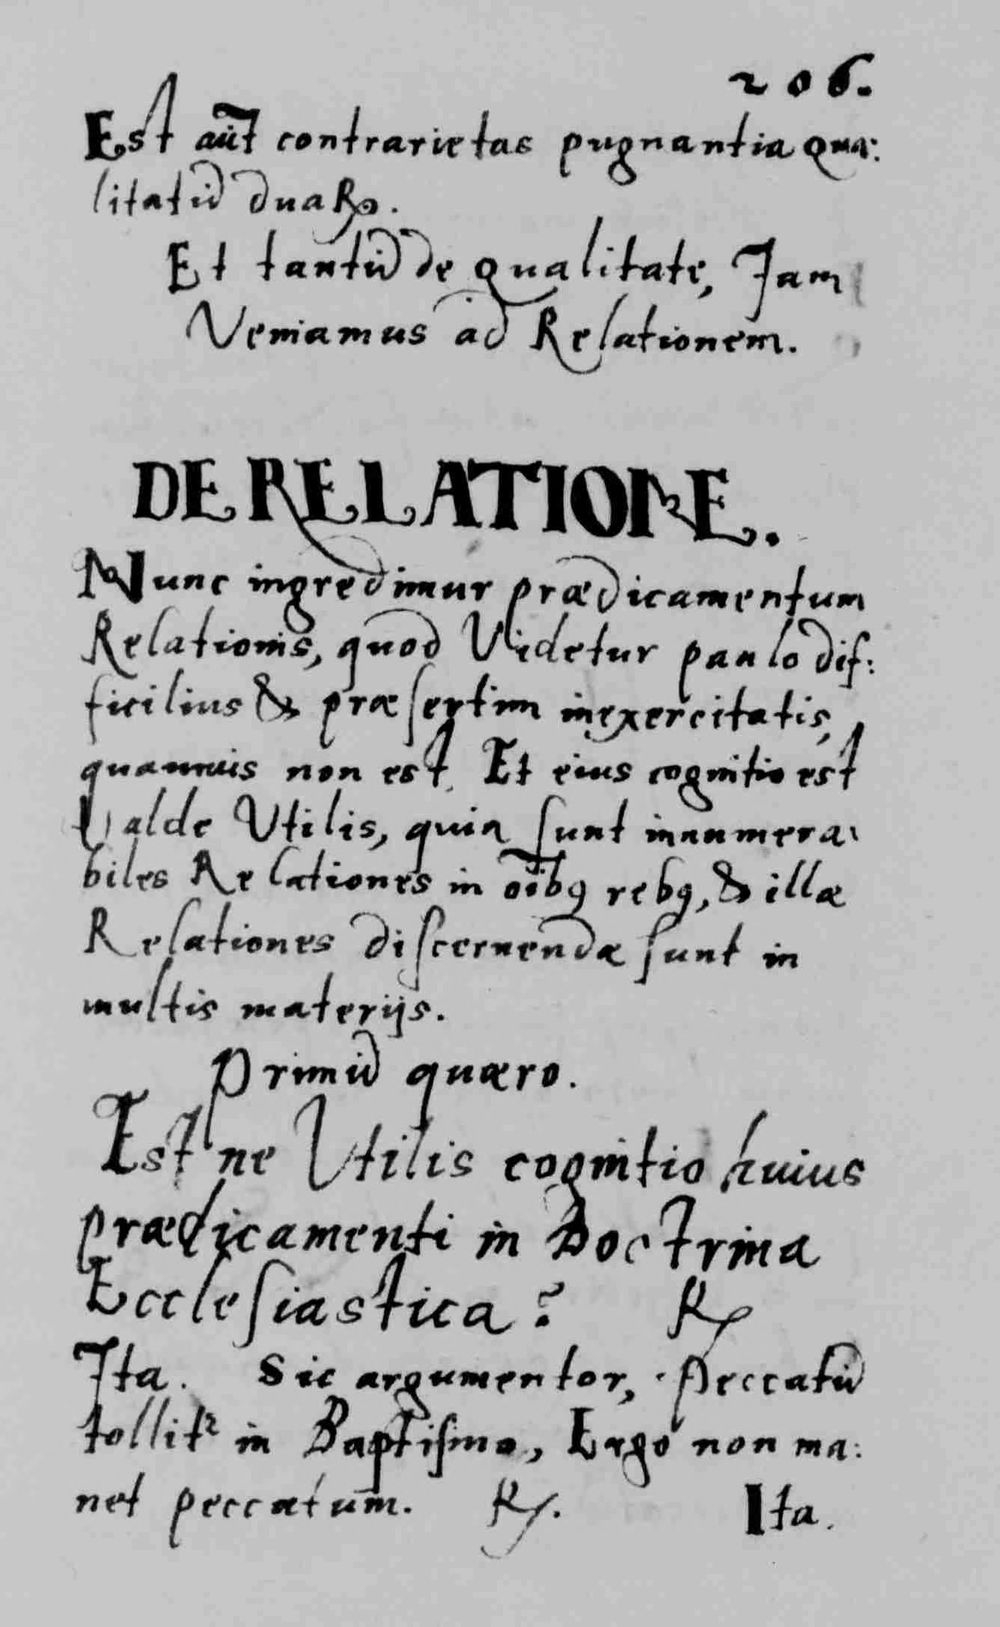 206.
Est aūt contrarietas pugnantia qua:
litatū duaꝝ.
Et tantū de qualitate, Jam
Veniamus ad Relationem.
DE RELATIONE.
Nunc ingredimur prædicamentum
Relationis, quod Videtur paulo dif:
ficilius & præsertim inexercitatis,
quamuis non est. Et eius cognitio est
Valde Vtilis, quia sunt innumera:
biles Relationes in oībꝰ rebꝰ, & illæ
Relationes discernendæ sunt in
multis materijs.
Primū quæro.
Est ne Vtilis cognitio huius
prædicamenti in Doctrina
Ecclesiastica? ℟
Ita. Sic argumentor, Peccatū
tollitᷣ in Baptismo, Ergo non ma:
net peccatum. ℟. Ita.